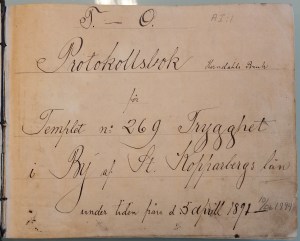 T. — O.
Protokollsbok
för
Templet nº 269 Trygghet
i By af St. Kopparbergs län
under tiden från d. 5 april 1891